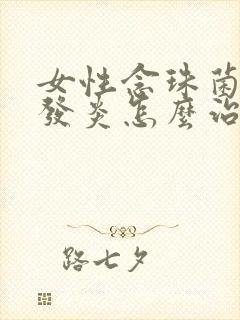 女性念珠菌
發炎怎麼治
路七夕